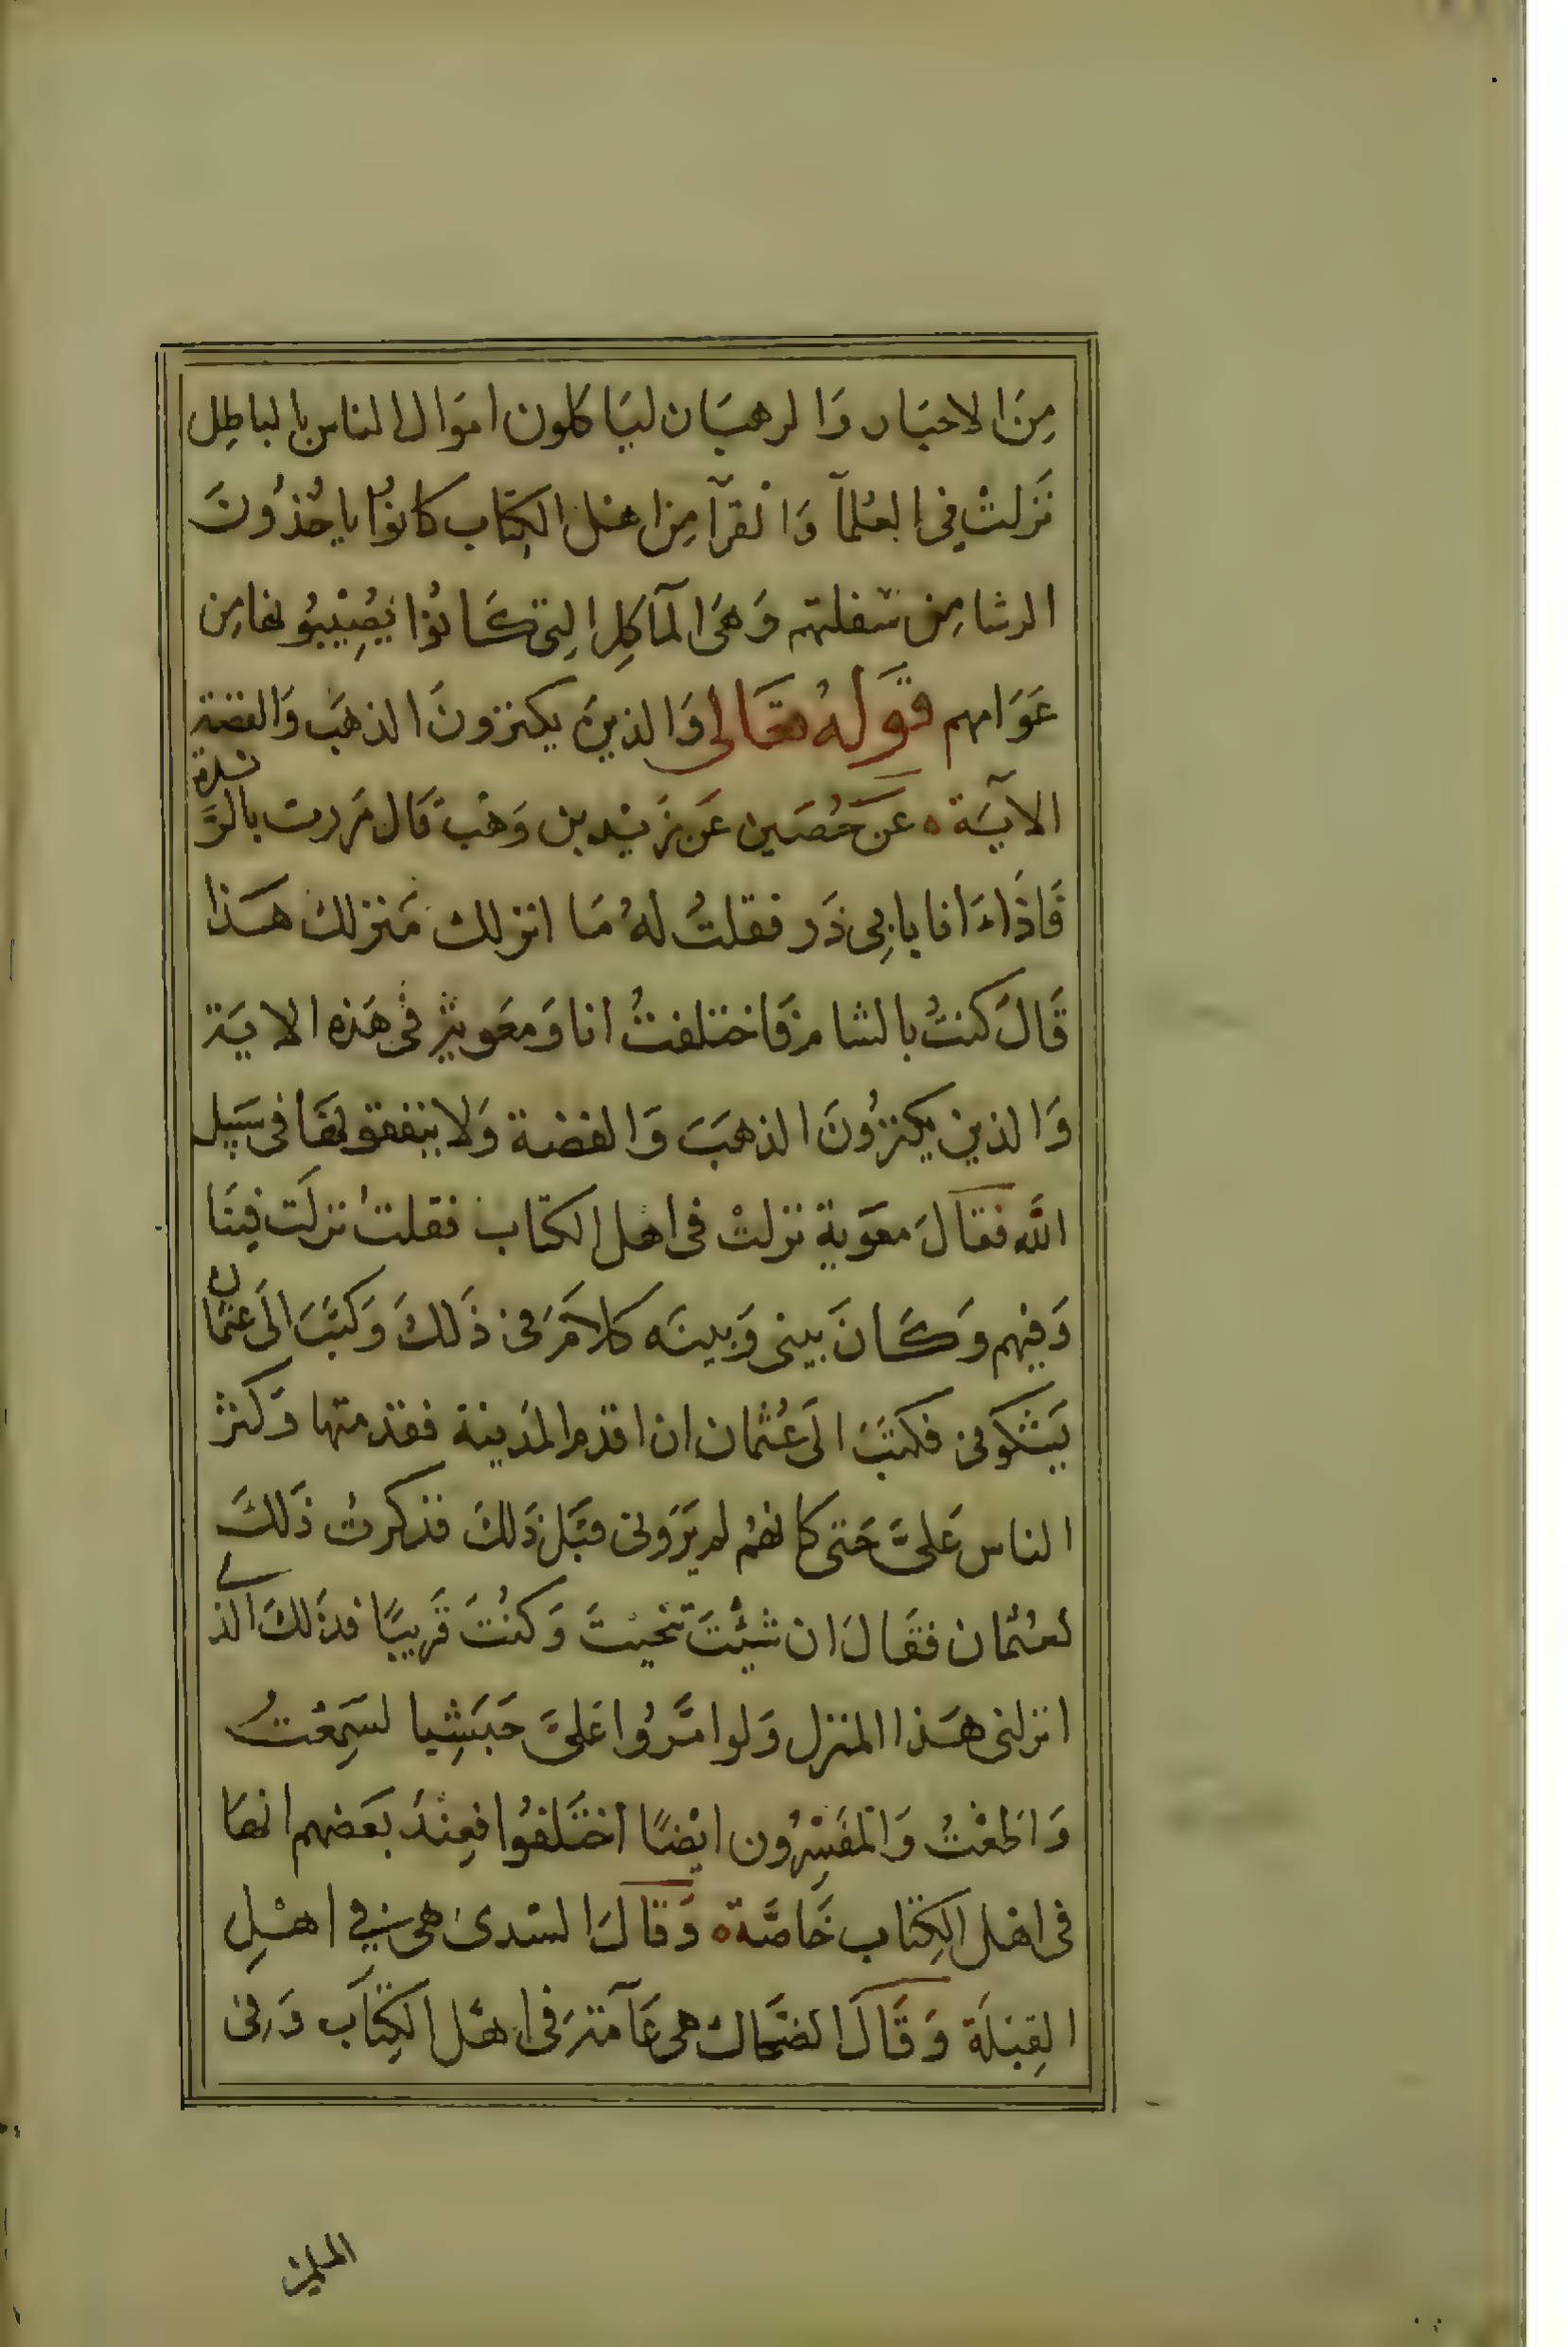 مِنَ الاحبَار وَالرهبَان ليَاكلون اموَال الناس بالباطِل
نَزلتْ فى العُلمآ وَالقرآ مِن اهْل الكِتاب كانوُا ياخُذوُنَ
الرشا مِن سَفلتهم وَهىَ المآكِل التِى كَانوُا يُصِيْبُونها مِن
عَوَامهم قَولهُ تعَالى وَالذينَ يكنزونَ الذهَب وَالفضة
الآيَة ه عَن حُصَين عَن زَيْد بن وَهْب قَال مَررت بالرَّبذة
فَاذَاءَ انا بابِى ذَر فقلتُ لهُ مَا انزلك مَنزلك هَذا
قَالَ كنتُ بالشام فَاختلفتُ انا وَمعَوية فى هَذه الايَة
وَالذين يكِنزُونَ الذهَبَ وَالفضة وَلا ينفقونهَا فى سَبيل
الله فقالَ معَوية نزلتْ فى اهل الكتاب فقلتُ نزلَت فينَا
وَفيهم وَكَانَ بينى وَبينَه كلامَ فى ذَلكَ وَكتَبَ الَى عثمان
يَشكوَنى فكتبَ الَى عُثمان ان اقدم المدَينة فقدمتها وَكثر
الناس عَلىَّ حَتى كانهُم لم يَرَونى قبَل ذَلكَ فذكرتُ ذَلكَ
لعُثمان فقَالَ ان شئْتَ تنحيْتَ وَكنُتَ قَريبًا فذَلكَ الذى
انزلنى هَذا المنزل وَلو امَّروُا عَلىَّ حَبَشِيا لسَمِعْتُ
وَاَطعْتُ وَالمُفَسِّرُون ايْضًا اختَلفوُا فعِنْدَ بعَضهم انهَا
فى اهْل الكِتاب خَاصَّة ه وَقالَ السْدىُ هى فِى اهْلِ
القِبْلَة وَقَالَ الضحَّاك هى عَآمة فى اهْل الكِتاَب وَفى
المسلمين